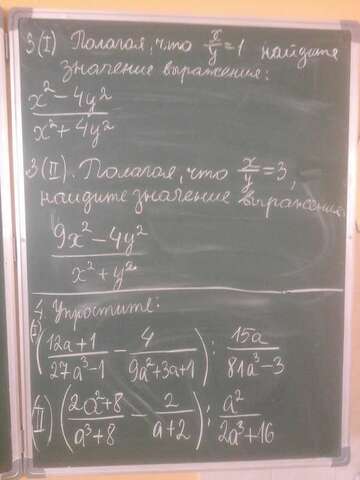 3(I) Полагая, что x/y=1 найдите
значение выражения:
(x²-4y²)/(x²+4y²)
3(II). Полагая, что x/y=3,
найдите значение выражения
(9x²-4y²)/(x²+y²)
4. Упростите:
I) ((12a+1)/(27a³-1) - 4/(9a²+3a+1)) : 15a/(81a³-3)
II) ((2a²+8)/(a³+8) - 2/(a+2)) : a²/(2a³+16)